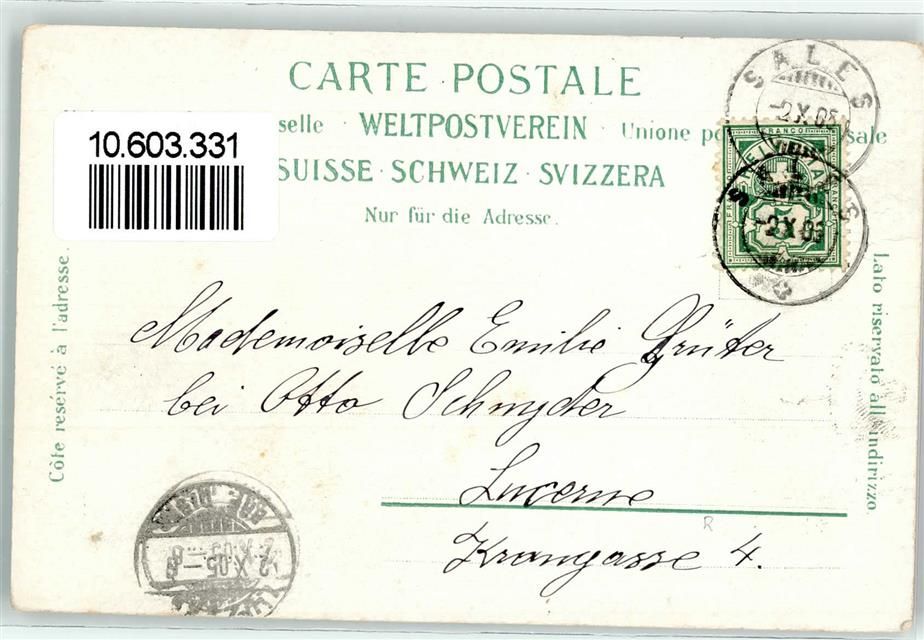 CARTE POSTALE
selle · WELTPOSTVEREIN · Unione po sale
SUISSE · SCHWEIZ · SVIZZERA
Nur für die Adresse.
10.603.331
SALES
-2X.05
SALES
-2X.05
FRANCO
Côté reservé à l'adresse.
Lato riservato all indirizzo.
Mademoiselle Emilie Grüter
bei Otto Schnyder
Lucerne
Krongasse 4.
-2.X.05.-8
R